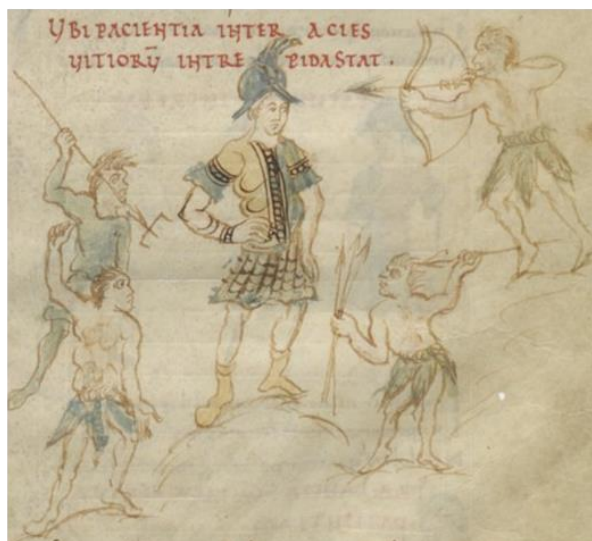 UBI PACIENTIA INTER ACIES
UITIORŪ INTREPIDA STAT.